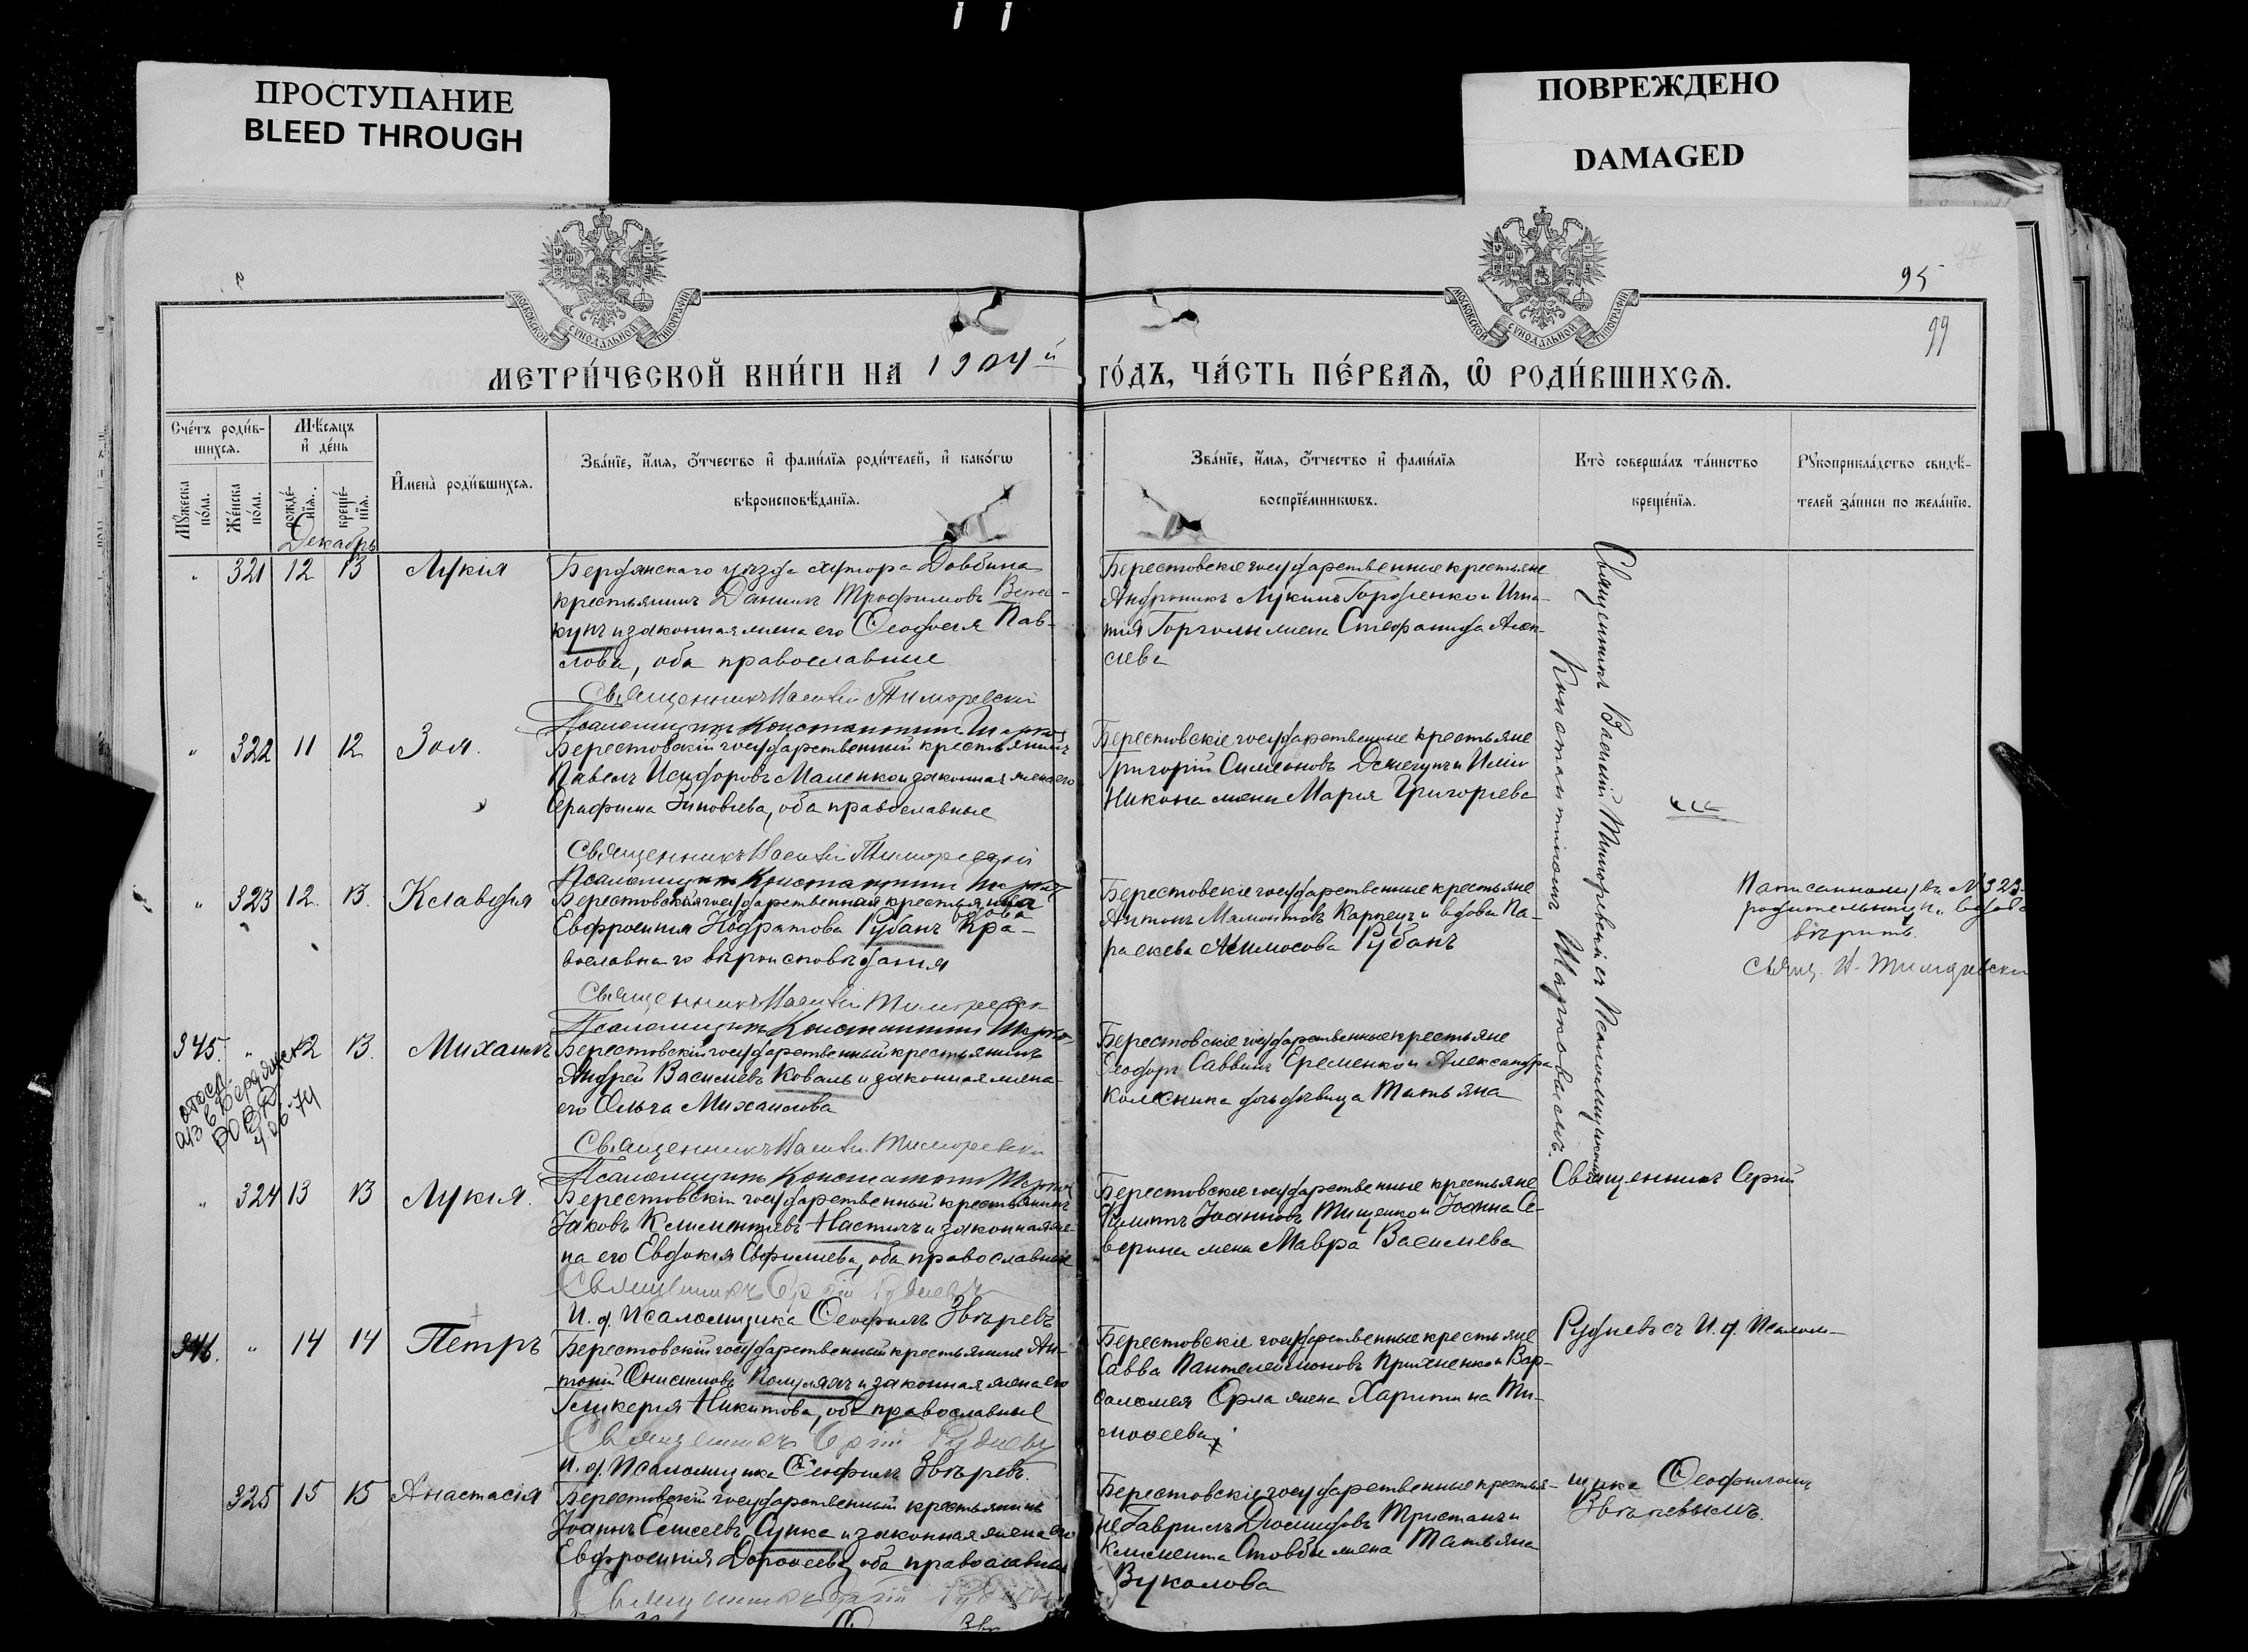 ПРОСТУПАНИЕ
BLEED THROUGH
ПОВРЕЖДЕНО
DAMAGED
МОСКОВСКОЙ СѴНОДАЛЬНОЙ ТИПОГРАФІИ
МОСКОВСКОЙ СѴНОДАЛЬНОЙ ТИПОГРАФІИ
95
99
МЕТРИ́ЧЕСКОЙ КНИ́ГИ НА 1904й ГО́ДЪ, ЧА́СТЬ ПЕ́РВАЯ, Ѡ РОДИ́ВШИХСЯ.
Сче́тъ роди́в-
шихся.
Мꙋ́жеска по́ла.
Же́нска по́ла.
Мѣ́сяцъ и҆ де́нь
рожде́-
нїя.
креще́-
нїя.
Декабрь
И҆мена̀ роди́вшихся.
Зва́нїе, и҆́мя, ѻ҆́тчество и҆ фами́лїя роди́телей, и҆ како́гѡ
вѣроисповѣ́данїя.
Зва́нїе, и҆́мя, ѻ҆́тчество и҆ фами́лїя
воспрїе́мникѡвъ.
Кто̀ соверша́лъ та́инство
креще́нїя.
Рꙋкоприкла́дство свидѣ́-
телей за́писи по жела́нїю.
" 321 12 13 Лукія
Бердянскаго уѣзда хутора Довбина
крестьянинъ Даніилъ Трофимовъ
и законная жена его Ѳеодосія Пав-
лова, оба православные
Священникъ Василій Тиморевскій
Псаломщикъ Константинъ
Берестовскіе государственные крестьяне
Андроникъ Лукинъ Гороженко и Игна-
тія Горголы жена Стефанида Алек-
сѣева
Священникъ Василій Тиморевскій съ Псаломщикомъ
Константиномъ
" 322 11 12 Зоя.
Берестовскій государственный крестьянинъ
Павелъ Исидоровъ Маленко и законная жена его
Серафима Зиновіева, оба православные
Священникъ Василій Тиморевскій
Псаломщикъ Константинъ
Берестовскіе государственные крестьяне
Григорій Симеоновъ
Никона жена Марія Григоріева
" 323 12. 13. Клавдія
Берестовская государственная крестьянка
вдова
Евфросинія Кодратова Рубанъ пра-
вославнаго вѣроисповѣданія
Священникъ Василій Тиморевск
Псаломщикъ Константинъ
Берестовскіе государственные крестьяне
Антонъ Мамонтовъ Карпецъ и вдова Па-
раскева Рубанъ
въ № 323
вдова
вѣрить.
Свящ. В. Тиморевскій
345. " 12 13. Михаилъ
Берестовскій государственный крестьянинъ
Андрей Василіевъ Коваль и законная жена
его Ольга Михаилова
Священникъ Василій Тиморевскій
Псаломщикъ Константинъ
Берестовскіе государственные крестьяне
Ѳеодоръ Саввинъ Еременко и Александра
Колесника дочь дѣвица Татьяна
" 324 13 13 Лукія.
Берестовскій государственный крестьянинъ
Іаковъ Климентіевъ и законная же-
на его Евдокія Евфиміева, оба православные
Священникъ Сергій Рудневъ
И. д. Псаломщика Ѳеофилъ Звѣревъ
Берестовскіе государственные крестьяне
Филиппъ Іоанновъ Тищенко и Іоанна Се-
верина жена Мавра Василіева
Священникъ Сергій
346. " 14 14 Петръ
Берестовскій государственный крестьянинъ Ан-
тоній Онисимовъ и законная жена его
Гликерія Никитова, оба православные
Священникъ Сергій Рудневъ
И. д. Псаломщика Ѳеофилъ Звѣревъ.
Берестовскіе государственные крестьяне
Савва Пантелеимоновъ и Вар-
ѳоломея Орла жена Харитина Ти-
моѳеева
Рудневъ съ И. д. Псалом-
325 15 15 Анастасія
Берестовскій государственный крестьянинъ
Іоаннъ Елисеевъ и законная жена его
Евфросинія Дороѳеева, оба православные
Священникъ Сергій Рудневъ
Берестовскіе государственные крестья-
не Гавріилъ Тристанъ и
Климента Стовбы жена Татьяна
Вуколова
щика Ѳеофиломъ
Звѣревымъ.